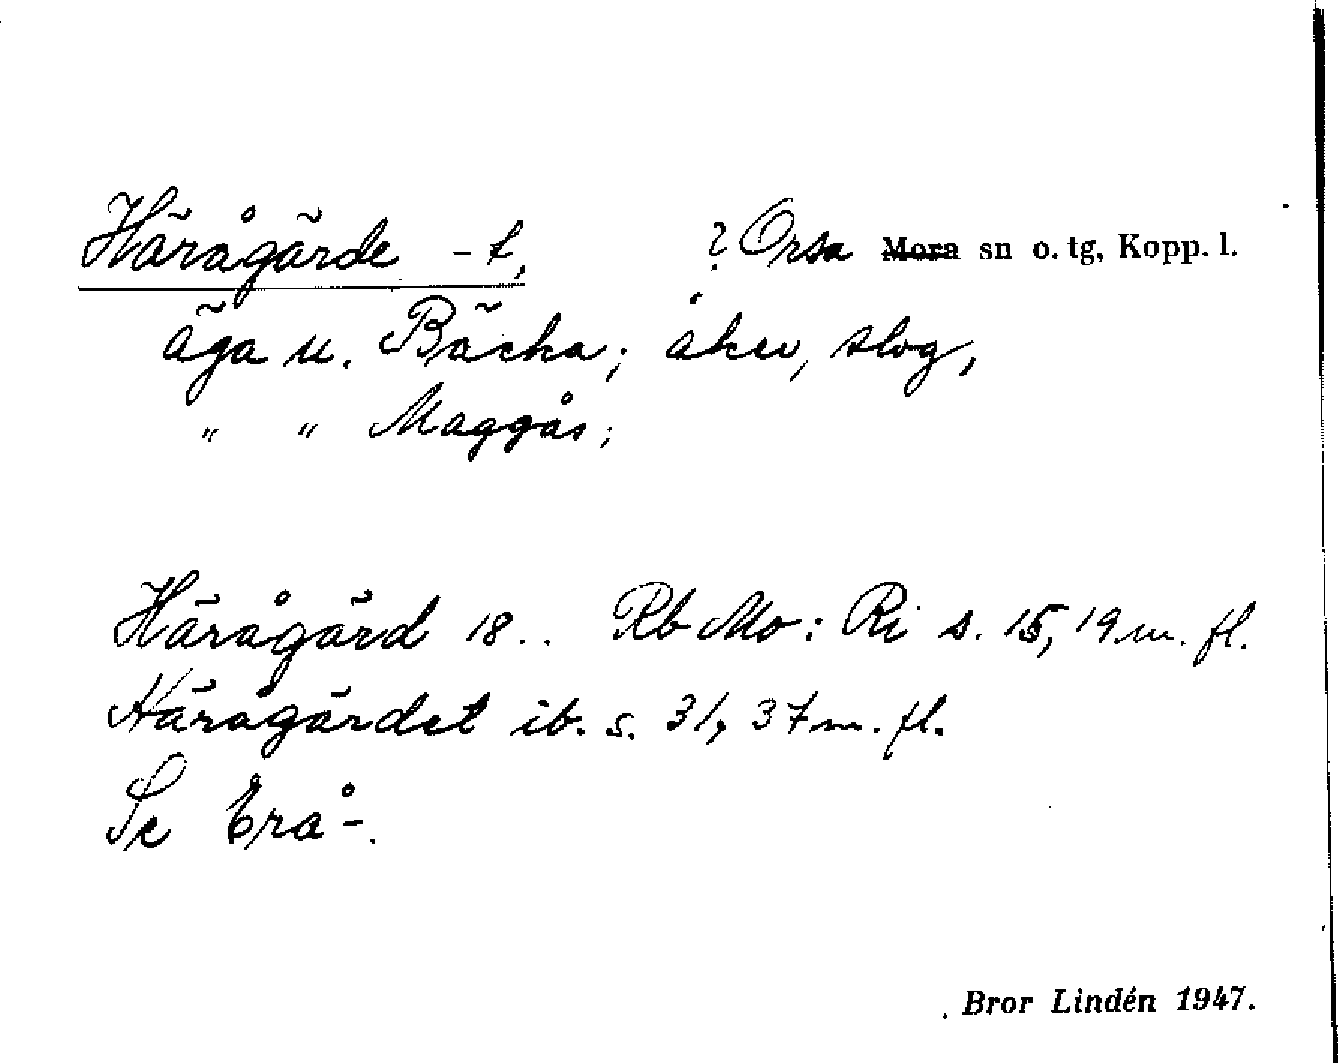 Härågärde -t, ? Orsa Mora sn o. tg, Kopp. l.
äga u. Bäcka; åker, slog,
" " Maggås;
Härågärd 18.. Rb Mo: Ri s. 15, 19 m. fl.
Häragärdet ib. s. 31, 37 m. fl.
Se Erå-.
Bror Lindén 1947.